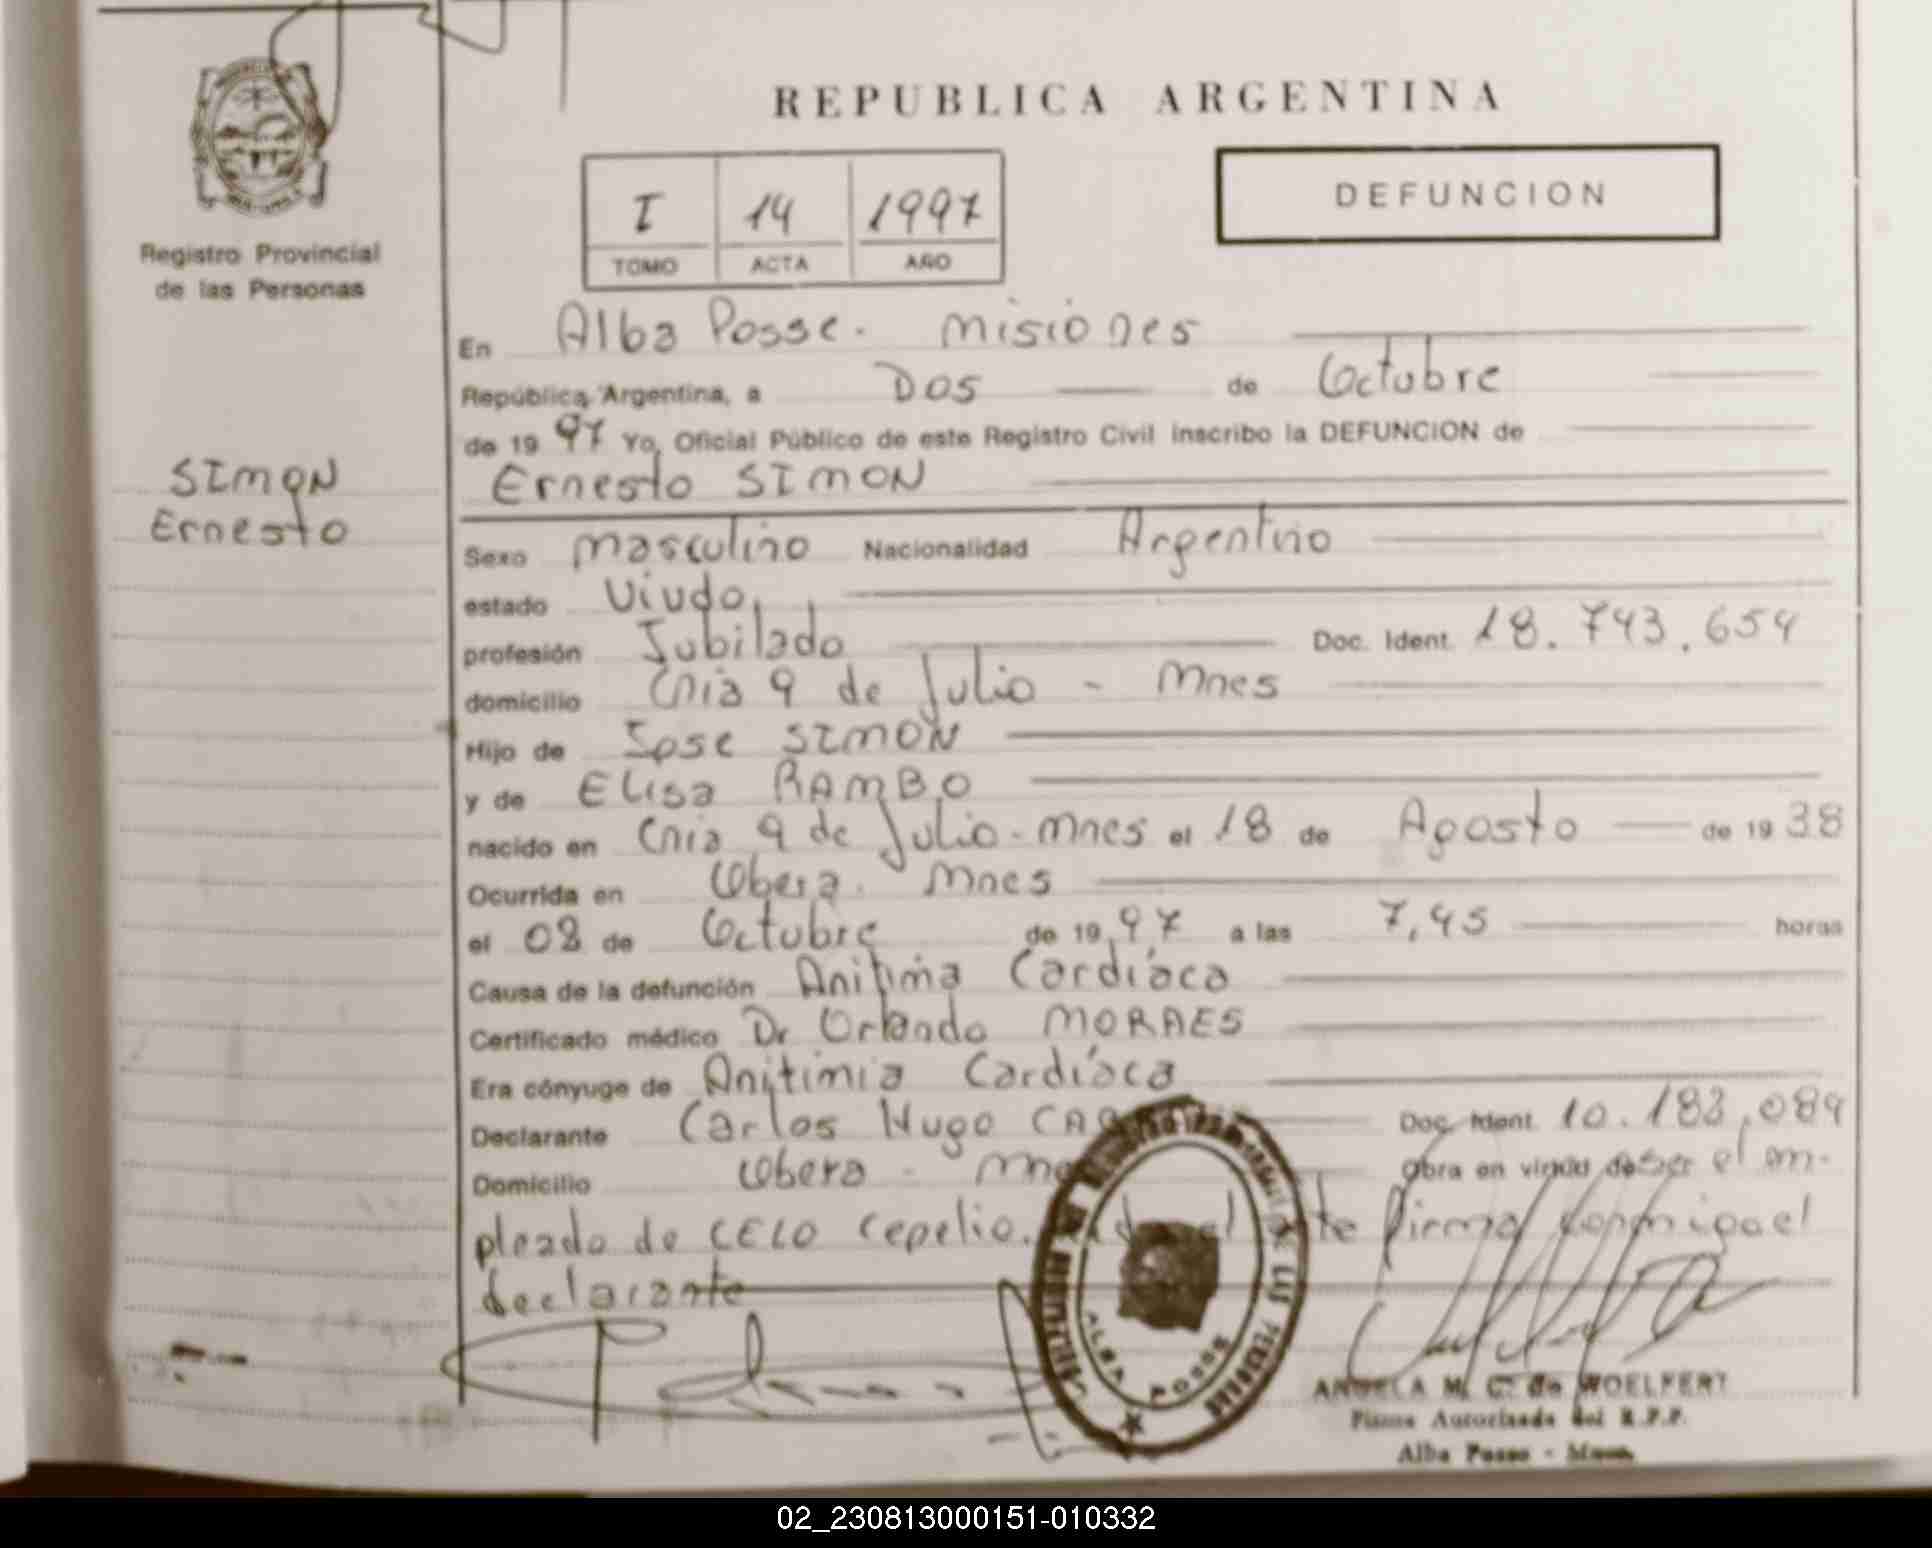 REPUBLICA ARGENTINA
DEFUNCION
I 14 1997
TOMO ACTA AÑO
Registro Provincial
de las Personas
SIMON
Ernesto
En Alba Posse. Misiones
República Argentina, a Dos de Octubre
de 1997 Yo, Oficial Público de este Registro Civil inscribo la DEFUNCION de
Ernesto SIMON
Sexo Masculino Nacionalidad Argentino
estado Viudo
profesión Jubilado Doc. Ident. 18.743.654
domicilio Cnia 9 de Julio - Mnes
Hijo de Jose SIMON
y de ELisa RAMBO
nacido en Cnia 9 de Julio - Mnes el 18 de Agosto de 1938
Ocurrida en Obera. Mnes
el 02 de Octubre de 1997 a las 7,45 horas
Causa de la defunción Anitimia Cardíaca
Certificado médico Dr Orlando MORAES
Era cónyuge de Anitimia Cardíaca
Declarante Carlos Hugo Doc. Ident. 10.183.089
Domicilio Obera - Obra en virtud de ser el em-
pleado de CELO Cepelio. firma conmigo el
declarante
ALBA POSSE
ANGELA M. C. de WOELFERT
Firma Autorizada del R.P.P.
Alba Posse - Mnes.
02_230813000151-010332